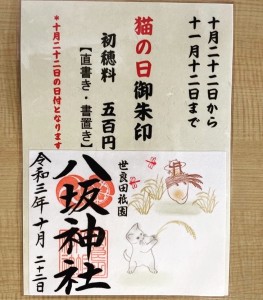 十月二十二日から
十一月十二日まで
猫の日御朱印
初穂料 五百円
【直書き・書置き】
*十月二十二日の日付となります
世良田祇園
八坂神社
令和三年十月二十二日